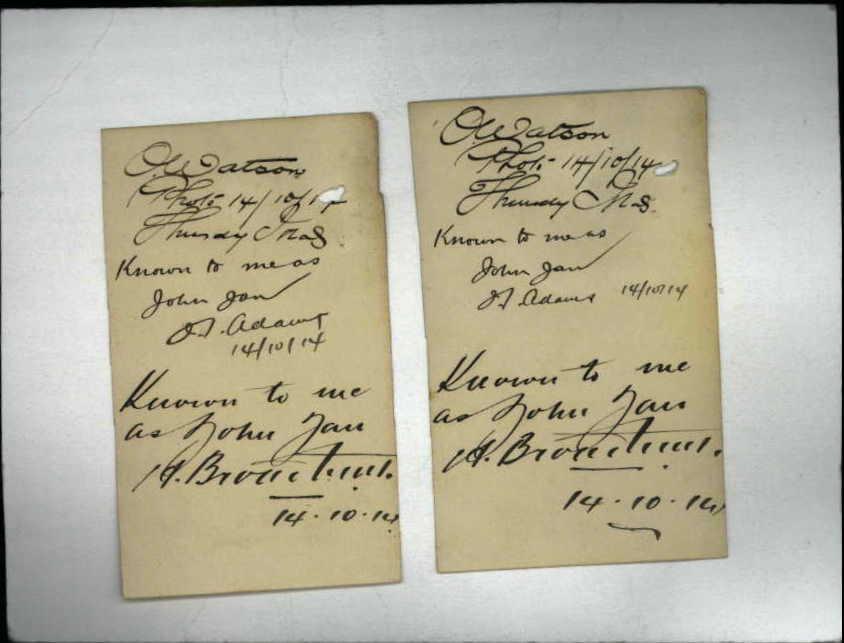 O. Watson
Photo 14/10/14
Thursday
Known to me as
John Jan
Adams
14/10/14
Known to me
as John Jan
H.
14.10.14
O. Watson
Photo 14/10/14
Thursday
Known to me as
John Jan
Adams 14/10/14
Known to me
as John Jan
H.
14.10.14